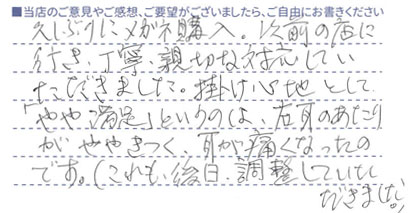 ■当店のご意見やご感想、ご要望がございましたら、ご自由にお書きください
久しぶりにメガネ購入。以前の店に
行き、丁寧、親切な対応してい
ただきました。掛け心地として
「やや満足」というのは、右耳のあたり
がややきつく、耳が痛くなったの
です。(これも後日、調整していた
だきました。)